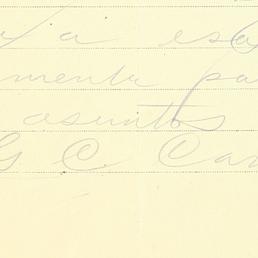 a esa
menta pa
asuntos
G C Car